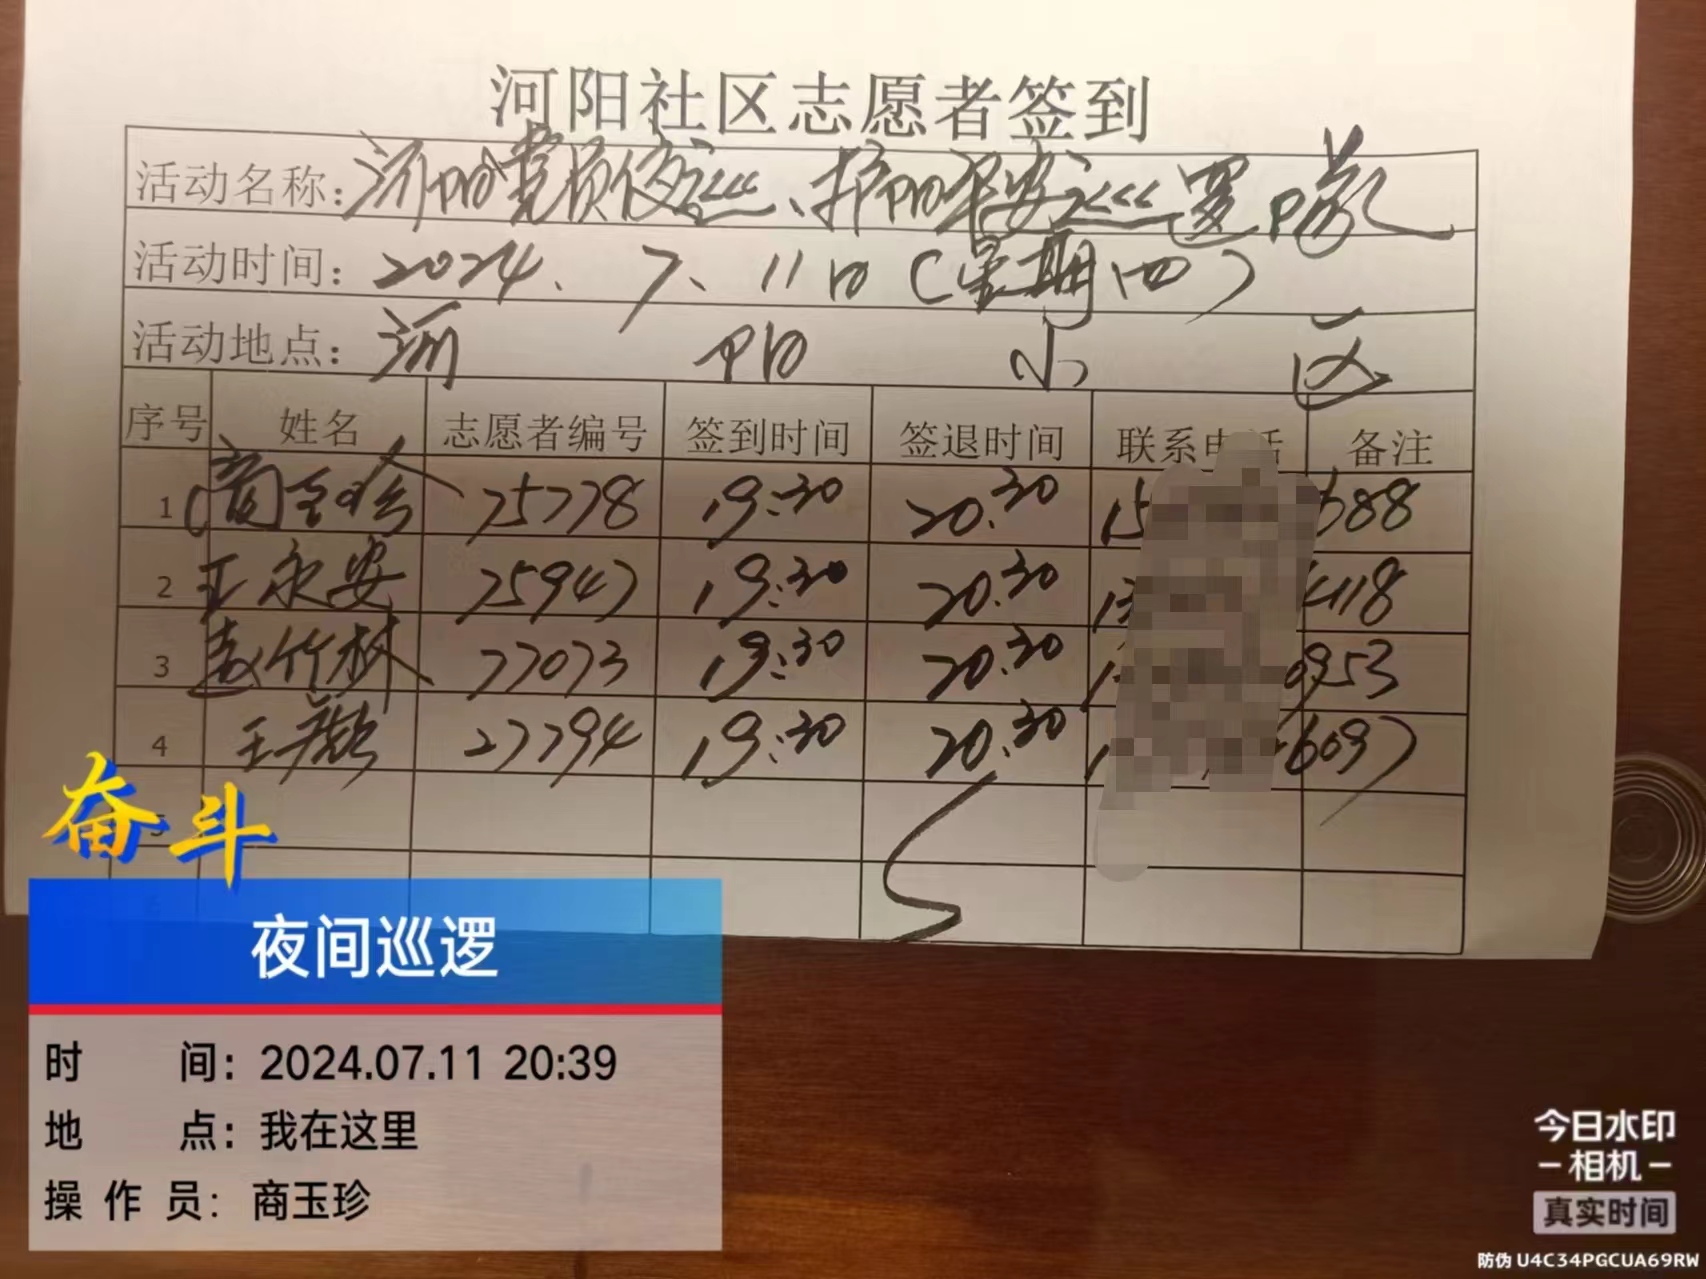 河阳社区志愿者签到
活动名称：河阳党员夜巡、护阳平安巡逻队
活动时间：2024、7、11日（星期四）
活动地点：河 阳 小 区
序号 姓名 志愿者编号 签到时间 签退时间 联系电话 备注
1 商玉珍 25778 19:30 20:30 15 688
2 王永安 25947 19:30 20:30 13 418
3 赵竹林 27073 19:30 20:30 1 0953
4 王 27794 19:30 20:30 1 6097
5
奋斗
夜间巡逻
时 间：2024.07.11 20:39
地 点：我在这里
操 作 员：商玉珍
今日水印
-相机-
真实时间
防伪 U4C34PGCUA69RW